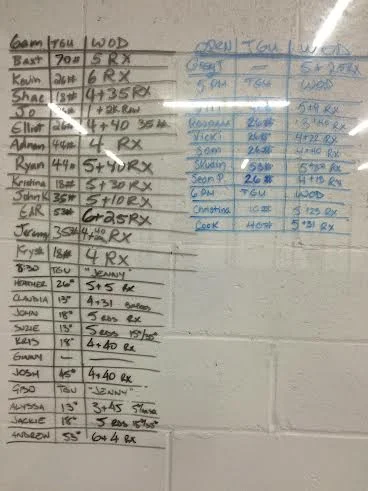 6am TGU WOD
Baxt 70# 5 RX
Kevin 26# 6 RX
Shae 18# 4+35 RX
Jo
Elliot 26# 4+40 35#
Adman 44# 4 RX
Ryan 44# 5+40 RX
Kristina 18# 5+30 RX
John K 35# 5+10 RX
EAR 53# 6+25 RX
Jeremy 35# RX
Krysta 18# 4 RX
8:30 TGU "JENNY"
HEATHER 26# 5+5 RX
CLAUDIA 13# 4+31
JOHN 18# 5 RDS RX
SUZIE 13# 5 RDS 15"/35#
KRIS 18# 4+40 RX
GINNY — —
JOSH 45# 4+40 RX
9:30 TGU "JENNY"
ALYSSA 13# 3+45
JACKIE 18# 5 RDS 15"/35#
ANDREW 53# 6+4 RX
OPEN TGU WOD
— 5+25RX
5 PM TGU WOD
5+9 RX
26# RX
Vicki 26# 4+22 RX
Sam 26# 4+40 RX
53# RX
Sean P. 26# 4+13 RX
6 PM TGU WOD
Christina 18# 5+23 RX
Cook 40# 5+31 RX